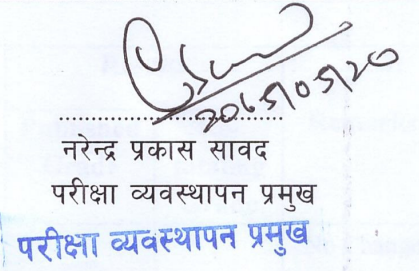 2065/05/20
नरेन्द्र प्रकास सावद
परीक्षा व्यवस्थापन प्रमुख
परीक्षा व्यवस्थापन प्रमुख